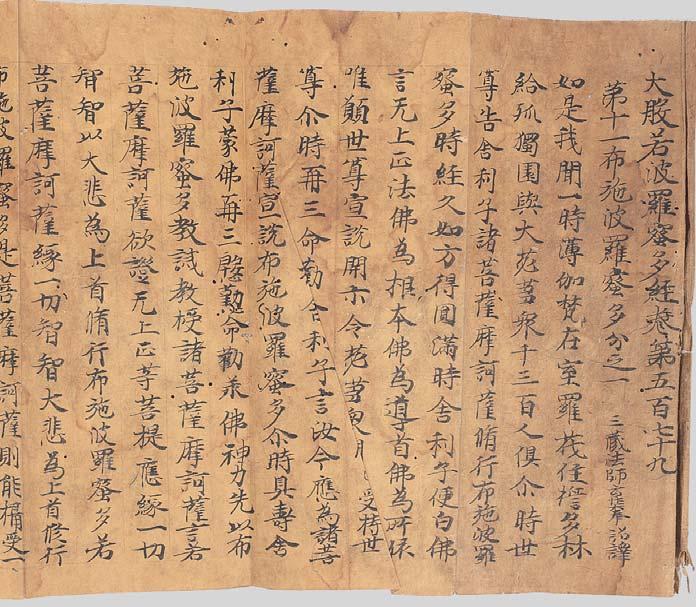 大般若波羅蜜多經卷第五百七十九
第十一布施波羅蜜多分之一 三藏法師玄奘奉 詔譯
如是我聞一時薄伽梵在室羅筏住誓多林
給孤獨園與大苾芻衆十三百人俱尒時世
尊告舍利子諸菩薩摩訶薩脩行布施波羅
蜜多時經久如方得圓滿時舍利子便白佛
言无上正法佛為根本佛為導首佛為所依
唯願世尊宣說開示令苾芻受持世
尊尒時再三命勸舍利子言汝今應為諸菩
薩摩訶薩宣說布施波羅蜜多尒時具壽舍
利子蒙佛再三慇懃命勸承佛神力先以布
施波羅蜜多教誡教授諸菩薩摩訶薩言若
菩薩摩訶薩欲證无上正等菩提應緣一切
智智以大悲為上首脩行布施波羅蜜多若
菩薩摩訶薩緣一切智智大悲為上首修行
布施波羅蜜多是菩薩摩訶薩則能攝受一